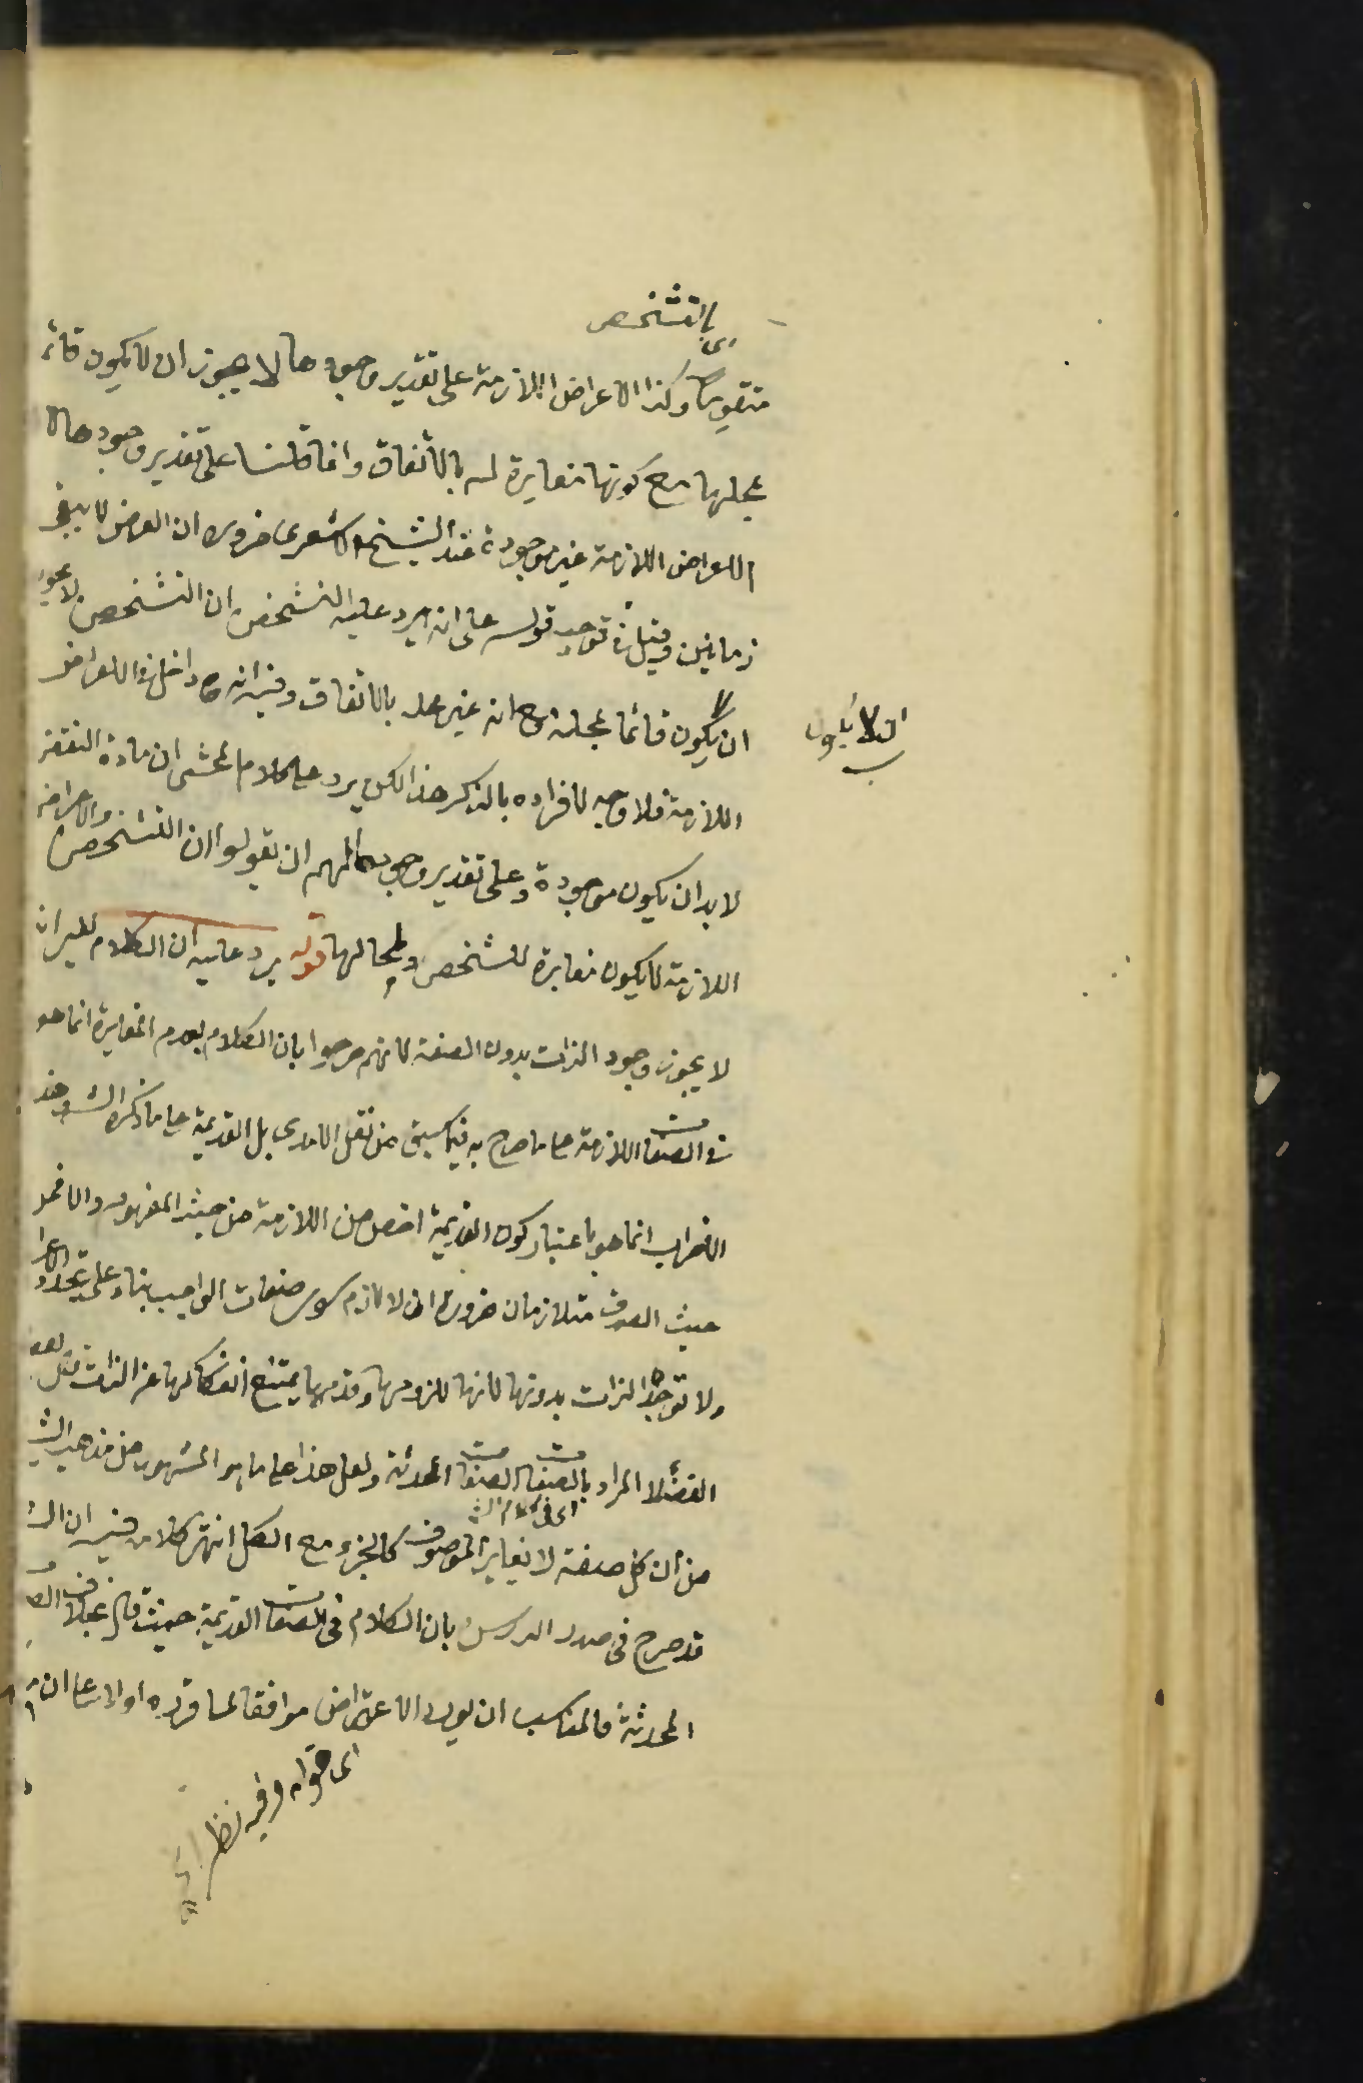 بالتشخص
متقوما وكذا الاعراض اللازمة على تقدير وجودها لا يجوز ان لا يكون قائمة
بمحلها مع كونها مغايرة له بالاتفاق وانما قلنا على تقدير وجودها لان
الاعراض اللازمة غير موجودة عند الشيخ الاشعرى ضرورة ان العرض لا يبقى
زمانين وقيل فى توجيه قوله على انه يرد عليه التشخص ان التشخص لا يجوز
ان لا يكون قائما بمحله مع انه غير محله بالاتفاق وفيه انه ح داخل فى الاعراض
ان لا يكون
اللازمة فلا وجه لافراده بالذكر هذا لكن يرد على كلام المحشى ان مادة النقض
لا بد ان يكون موجودة وعلى تقدير وجودها لهم ان يقولوا ان التشخص والاعراض
اللازمة لا يكون مغايرة للشخص ولمحالها قوله يرد عليه ان الكلام
لا يجوز وجود الذات بدون الصفة لانهم صرحوا بان الكلام بعدم المغايرة انما هو
فى الصفات اللازمة على ما صرح به فيما سبق من نقل الآمدى بل القديمة على ما ذكره الش وهذا
الاضراب انما هو باعتبار كون القديمة اخص من اللازمة من حيث المفهوم والا فهما من
حيث الصدق متلازمان ضرورة ان لا لازم سوى صفات الواجب بناء على تجدد الاعراض
ولا توجد الذات بدونها لانها للزومها وقدمها يمتنع انفكاكها عن الذات قيل بعض
الفضلاء المراد بالصفات الصفات المحدثة ولعل هذا على ما هو المشهور من مذهب الشيخ
اى فى كلام الش
من ان كل صفة لا يغاير الموصوف كالجزء مع الكل انتهى كلامه وفيه ان الش
قد صرح فى صدر الدرس بان الكلام فى الصفات القديمة حيث قال بخلاف الصفات
المحدثة فالمناسب ان يورد الاعتراض موافقا لما قرره اولا على ان
الى قوله وفيه نظر